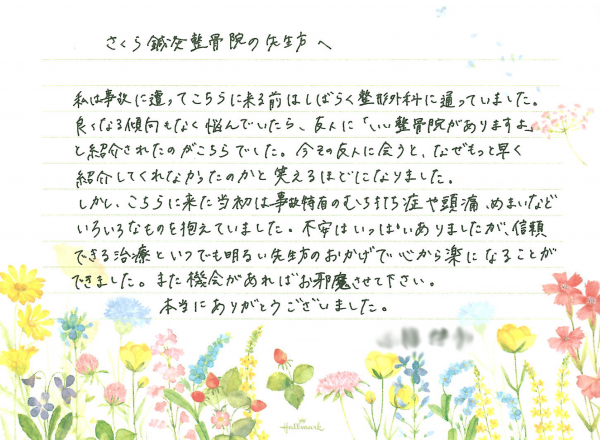 さくら鍼灸整骨院の先生方へ
私は事故に遭ってこちらに来る前はしばらく整形外科に通っていました。
良くなる傾向もなく悩んでいたら、友人に「いい整骨院がありますよ」
と紹介されたのがこちらでした。今その友人に会うと、なぜもっと早く
紹介してくれなかったのかと笑えるほどになりました。
しかし、こちらに来た当初は事故特有のむち打ち症や頭痛、めまいなど
いろいろなものを抱えていました。不安はいっぱいありましたが、信頼
できる治療といつでも明るい先生方のおかげで心から楽になることが
できました。また機会があればお邪魔させて下さい。
本当にありがとうございました。
Hallmark